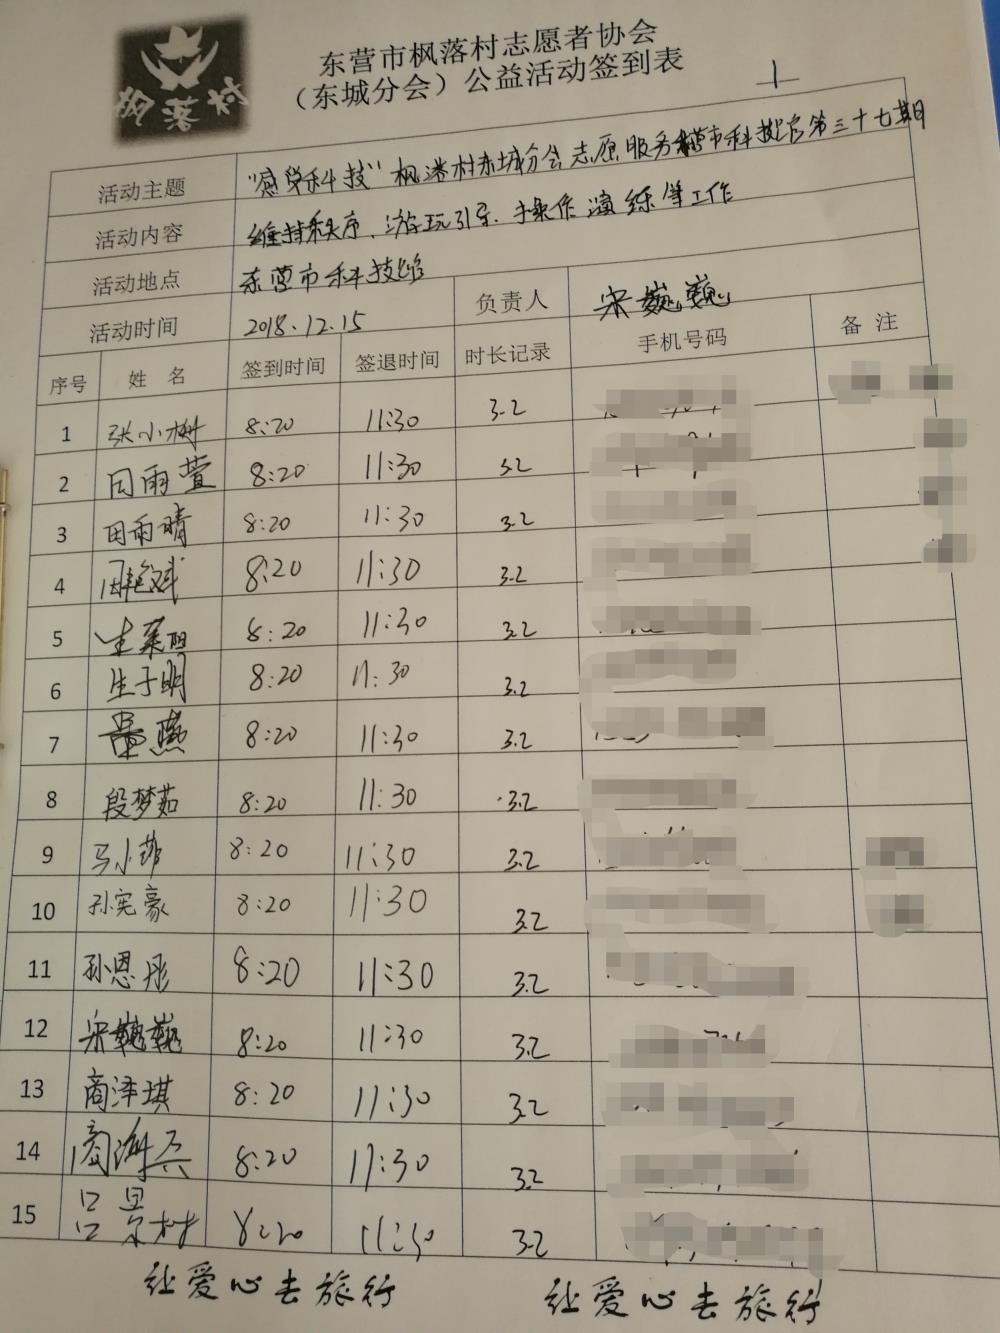 枫落村
东营市枫落村志愿者协会
（东城分会）公益活动签到表
活动主题 “感受科技”枫落村东城分会志愿服务 市科技馆第三十七期
活动内容 维持秩序、游玩引导、操作演练等工作
活动地点 东营市科技馆
活动时间 2018.12.15 负责人 宋巍巍
序号 姓名 签到时间 签退时间 时长记录 手机号码 备注
1 张小树 8:20 11:30 3.2
2 田雨萱 8:20 11:30 3.2
3 田雨晴 8:20 11:30 3.2
4 8:20 11:30 3.2
5 8:20 11:30 3.2
6 生子明 8:20 11:30 3.2
7 燕 8:20 11:30 3.2
8 段梦茹 8:20 11:30 3.2
9 马小菲 8:20 11:30 3.2
10 孙宪豪 8:20 11:30 3.2
11 孙恩彤 8:20 11:30 3.2
12 宋巍巍 8:20 11:30 3.2
13 商泽琪 8:20 11:30 3.2
14 商海兵 8:20 11:30 3.2
15 吕景树 8:20 11:30 3.2
让爱心去旅行 让爱心去旅行